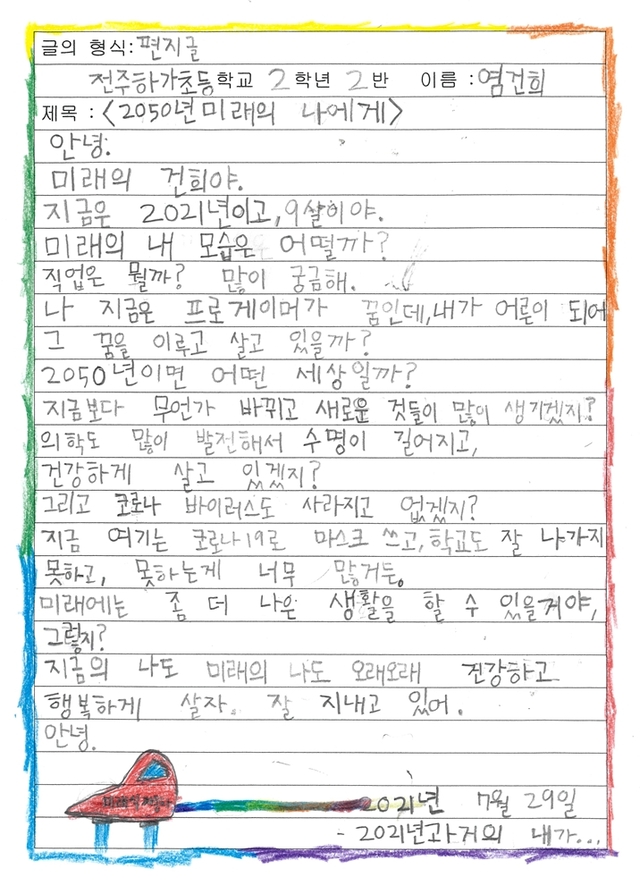 글의 형식:편지글
전주하가초등학교 2학년 2반 이름 :염건희
제목 :<2050년미래의 나에게>
안녕.
미래의 건희야.
지금은 2021년이고,9살이야.
미래의 내 모습은 어떨까?
직업은 뭘까? 많이 궁금해.
나 지금은 프로게이머가 꿈인데,내가 어른이 되어
그 꿈을 이루고 살고 있을까?
2050년이면 어떤 세상일까?
지금보다 무언가 바뀌고 새로운 것들이 많이 생기겠지?
의학도 많이 발전해서 수명이 길어지고,
건강하게 살고 있겠지?
그리고 코로나 바이러스도 사라지고 없겠지?
지금 여기는 코로나19로 마스크 쓰고,학교도 잘 나가지
못하고, 못하는게 너무 많거든.
미래에는 좀 더 나은 생활을 할 수 있을거야,
그렇지?
지금의 나도 미래의 나도 오래오래 건강하고
행복하게 살자. 잘 지내고 있어.
안녕.
2021년 7월 29일
-2021년과거의 내가...